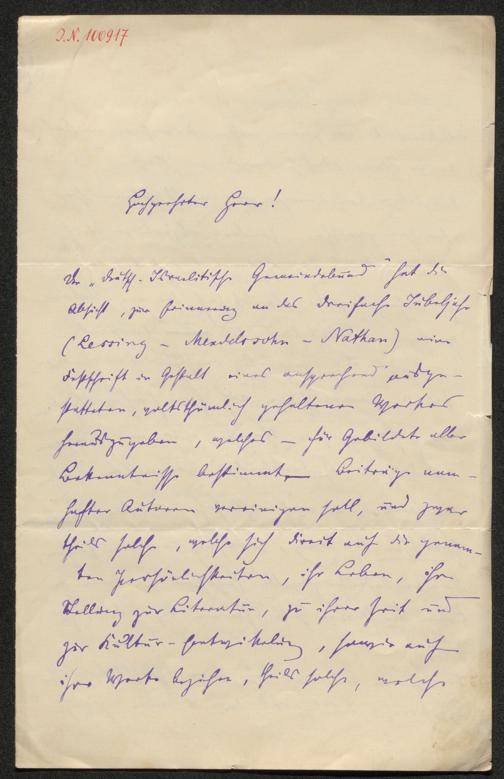 I.N. 100917
Hochgeehrter Herr!
Der „Deutsch-Israelitische Gemeindebund" hat die
Absicht, zur Erinnerung an das dreifache Jubeljahr
(Lessing – Mendelssohn – Nathan) eine
Festschrift in Gestalt eines ansprechend ausge-
statteten, volksthümlich gehaltenen Werkes
herauszugeben, welches – für Gebildete aller
Bekenntnisse bestimmt – Beiträge nam-
hafter Autoren vereinigen soll, und zwar
theils solche, welche sich direct auf die genann-
ten Persönlichkeiten, ihr Leben, ihre
Stellung zur Literatur, zu ihrer Zeit und
zur Kultur-Entwickelung, sowie auf
ihre Werke beziehen, theils solche, welche